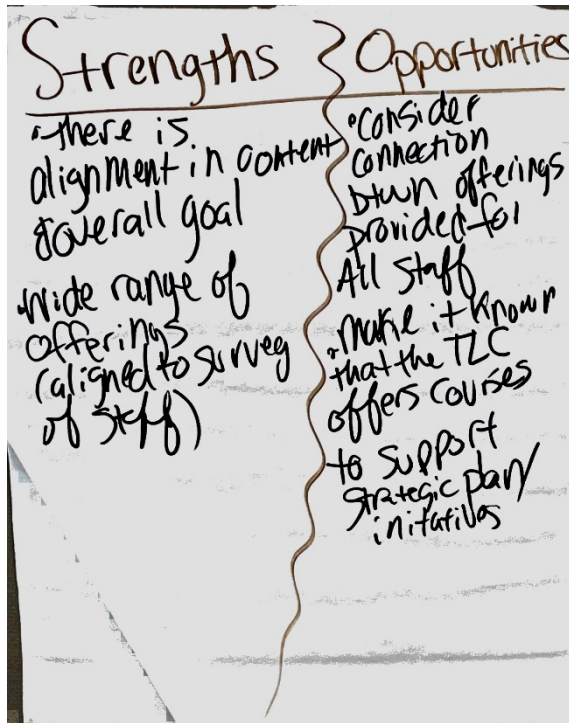 Strengths
• There is
alignment in content
& overall goal
• Wide range of
offerings
(aligned to survey
of staff)
Opportunities
• Consider
connection
btwn offerings
provided for
All staff
• Make it known
that the TLC
offers courses
to support
strategic plan/
initatives